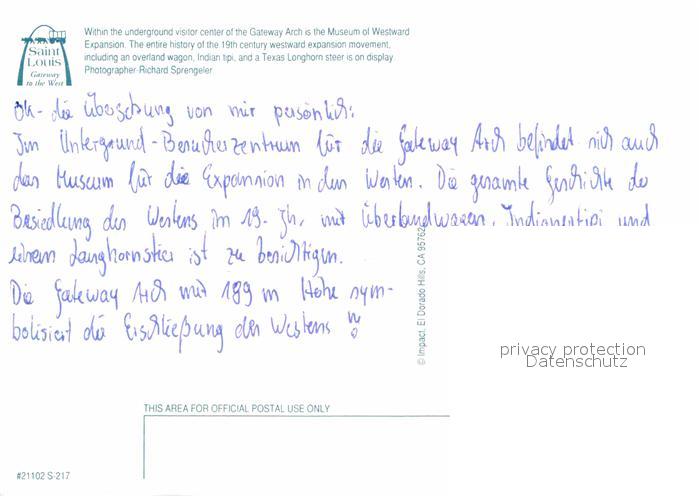 Saint
Louis
Gateway
to the West
Within the underground visitor center of the Gateway Arch is the Museum of Westward
Expansion. The entire history of the 19th century westward expansion movement,
including an overland wagon, Indian tipi, and a Texas Longhorn steer is on display.
Photographer-Richard Sprengeler
Ok - die Übersetzung von mir persönlich:
Im Untergrund-Besucherzentrum für die Gateway Arch befindet sich auch
das Museum für die Expansion in den Westen. Die gesamte Geschichte der
Besiedlung des Westens im 19. Jh. mit Überlandwagen, Indianertipi und
einem Langhornstier ist zu besichtigen.
Die Gateway Arch mit 189 m Höhe sym-
bolisiert die Erschließung des Westens!
© Impact, El Dorado Hills, CA 95762
privacy protection
Datenschutz
THIS AREA FOR OFFICIAL POSTAL USE ONLY
#21102 S-217